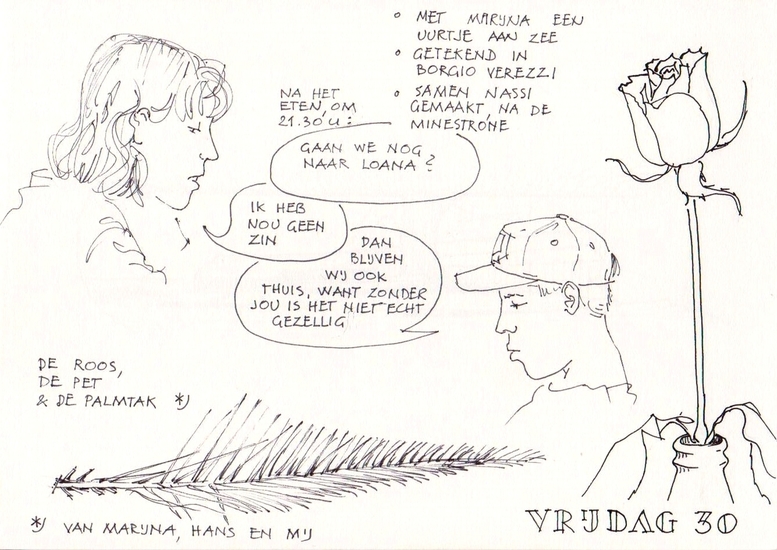 ° MET MARIJNA EEN
UURTJE AAN ZEE
° GETEKEND IN
BORGIO VEREZZI
° SAMEN NASSI
GEMAAKT, NA DE
MINESTRONE
NA HET
ETEN, OM
21.30 U:
GAAN WE NOG
NAAR LOANA?
IK HEB
NOU GEEN
ZIN
DAN
BLIJVEN
WIJ OOK
THUIS, WANT ZONDER
JOU IS HET NIET ECHT
GEZELLIG
DE ROOS,
DE PET
& DE PALMTAK *)
*) VAN MARIJNA, HANS EN MIJ
VRIJDAG 30